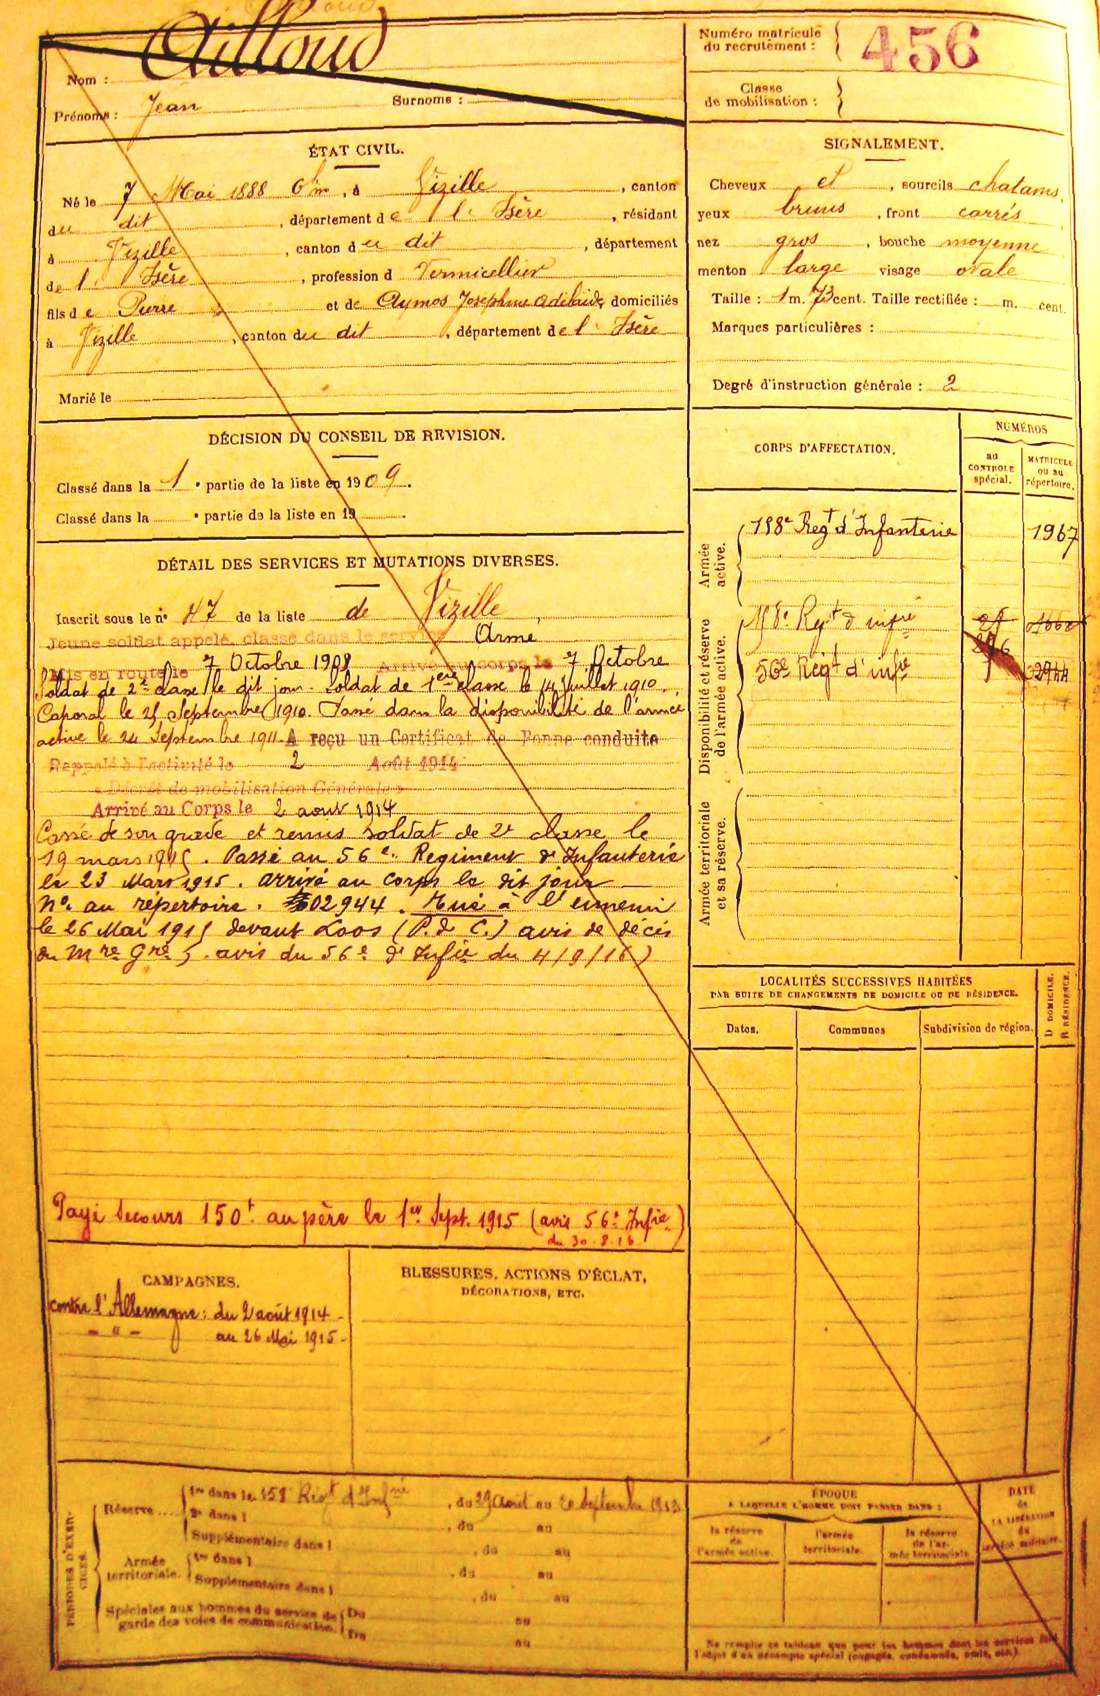 Nom : Ailloud
Prénoms : Jean Surnoms :
Numéro matricule du recrutement : 456
Classe de mobilisation :
ÉTAT CIVIL.
Né le 7 Mai 1888, à Vizille, canton
du dit, département de l'Isère, résidant
à Vizille, canton du dit, département
de l'Isère, profession d Vermicellier
fils de Pierre et de Aymos Josephine Adélaide domiciliés
à Vizille, canton du dit, département de l'Isère
Marié le
SIGNALEMENT.
Cheveux et, sourcils chatains,
yeux bruns, front carrés
nez gros, bouche moyenne
menton large visage ovale
Taille : 1 m. 73 cent. Taille rectifiée : m. cent.
Marques particulières :
Degré d'instruction générale : 2
DÉCISION DU CONSEIL DE REVISION.
Classé dans la 1e partie de la liste en 1909.
Classé dans la e partie de la liste en 19 .
DÉTAIL DES SERVICES ET MUTATIONS DIVERSES.
Inscrit sous le n° 47 de la liste de Vizille
Jeune soldat appelé, classé dans le service Armé
Mis en route le 7 Octobre 1908 Arrivé au corps le 7 Octobre
Soldat de 2e classe le dit jour. Soldat de 1ere classe le 14 juillet 1910.
Caporal le 25 Septembre 1910. Passé dans la disponibilité de l'armée
active le 24 Septembre 1911. A reçu un Certificat de Bonne conduite
Rappelé à l'activité le 2 Août 1914
« Décret de mobilisation Générale »
Arrivé au Corps le 2 aout 1914
Cassé de son grade et remis soldat de 2e classe le
19 mars 1915. Passé au 56e Regiment d'Infanterie
le 23 Mars 1915. arrivé au corps le dit jour
N° au répertoire. 02944. Tué à l'ennemi
le 26 Mai 1915 devant Loos (P. de C.) avis de décès
du Mre Gre 5. avis du 56e d'Infie du 4/9/16)
Payé secours 150f au père le 1er Sept. 1915 (avis 56e Infie)
du 30.8.16
CORPS D'AFFECTATION.
NUMÉROS
AU CONTROLE spécial.
MATRICULE OU AU répertoire.
Armée active.
158e Regt d'Infanterie 1967
Disponibilité et réserve de l'armée active.
158e Regt d'infie
56e Regt d'infie 02944
Armée territoriale et sa réserve.
LOCALITÉS SUCCESSIVES HABITÉES
PAR SUITE DE CHANGEMENTS DE DOMICILE OU DE RÉSIDENCE.
Dates. Communes Subdivision de région.
D DOMICILE.
R RÉSIDENCE.
CAMPAGNES.
contre l'Allemagne : du 2 août 1914 -
- " - au 26 Mai 1915 -
BLESSURES, ACTIONS D'ÉCLAT,
DÉCORATIONS, ETC.
PÉRIODES D'EXERCICES.
Réserve
1re dans le 158e Regt d'Infrie, du 29 août au 20 Septembre 1913
2e dans l , du au
Supplémentaire dans l , du au
Armée territoriale.
1re dans l , du au
Supplémentaire dans l , du au
Spéciales aux hommes du service de garde des voies de communication.
Du au
Du au
ÉPOQUE
A LAQUELLE L'HOMME DOIT PASSER DANS :
la réserve de l'armée active.
l'armée territoriale.
la réserve de l'armée territoriale.
DATE de LA LIBÉRATION du service militaire.
Ne remplir ce tableau que pour les hommes dont les services font
l'objet d'un décompte spécial (engagés, condamnés, omis, etc.)